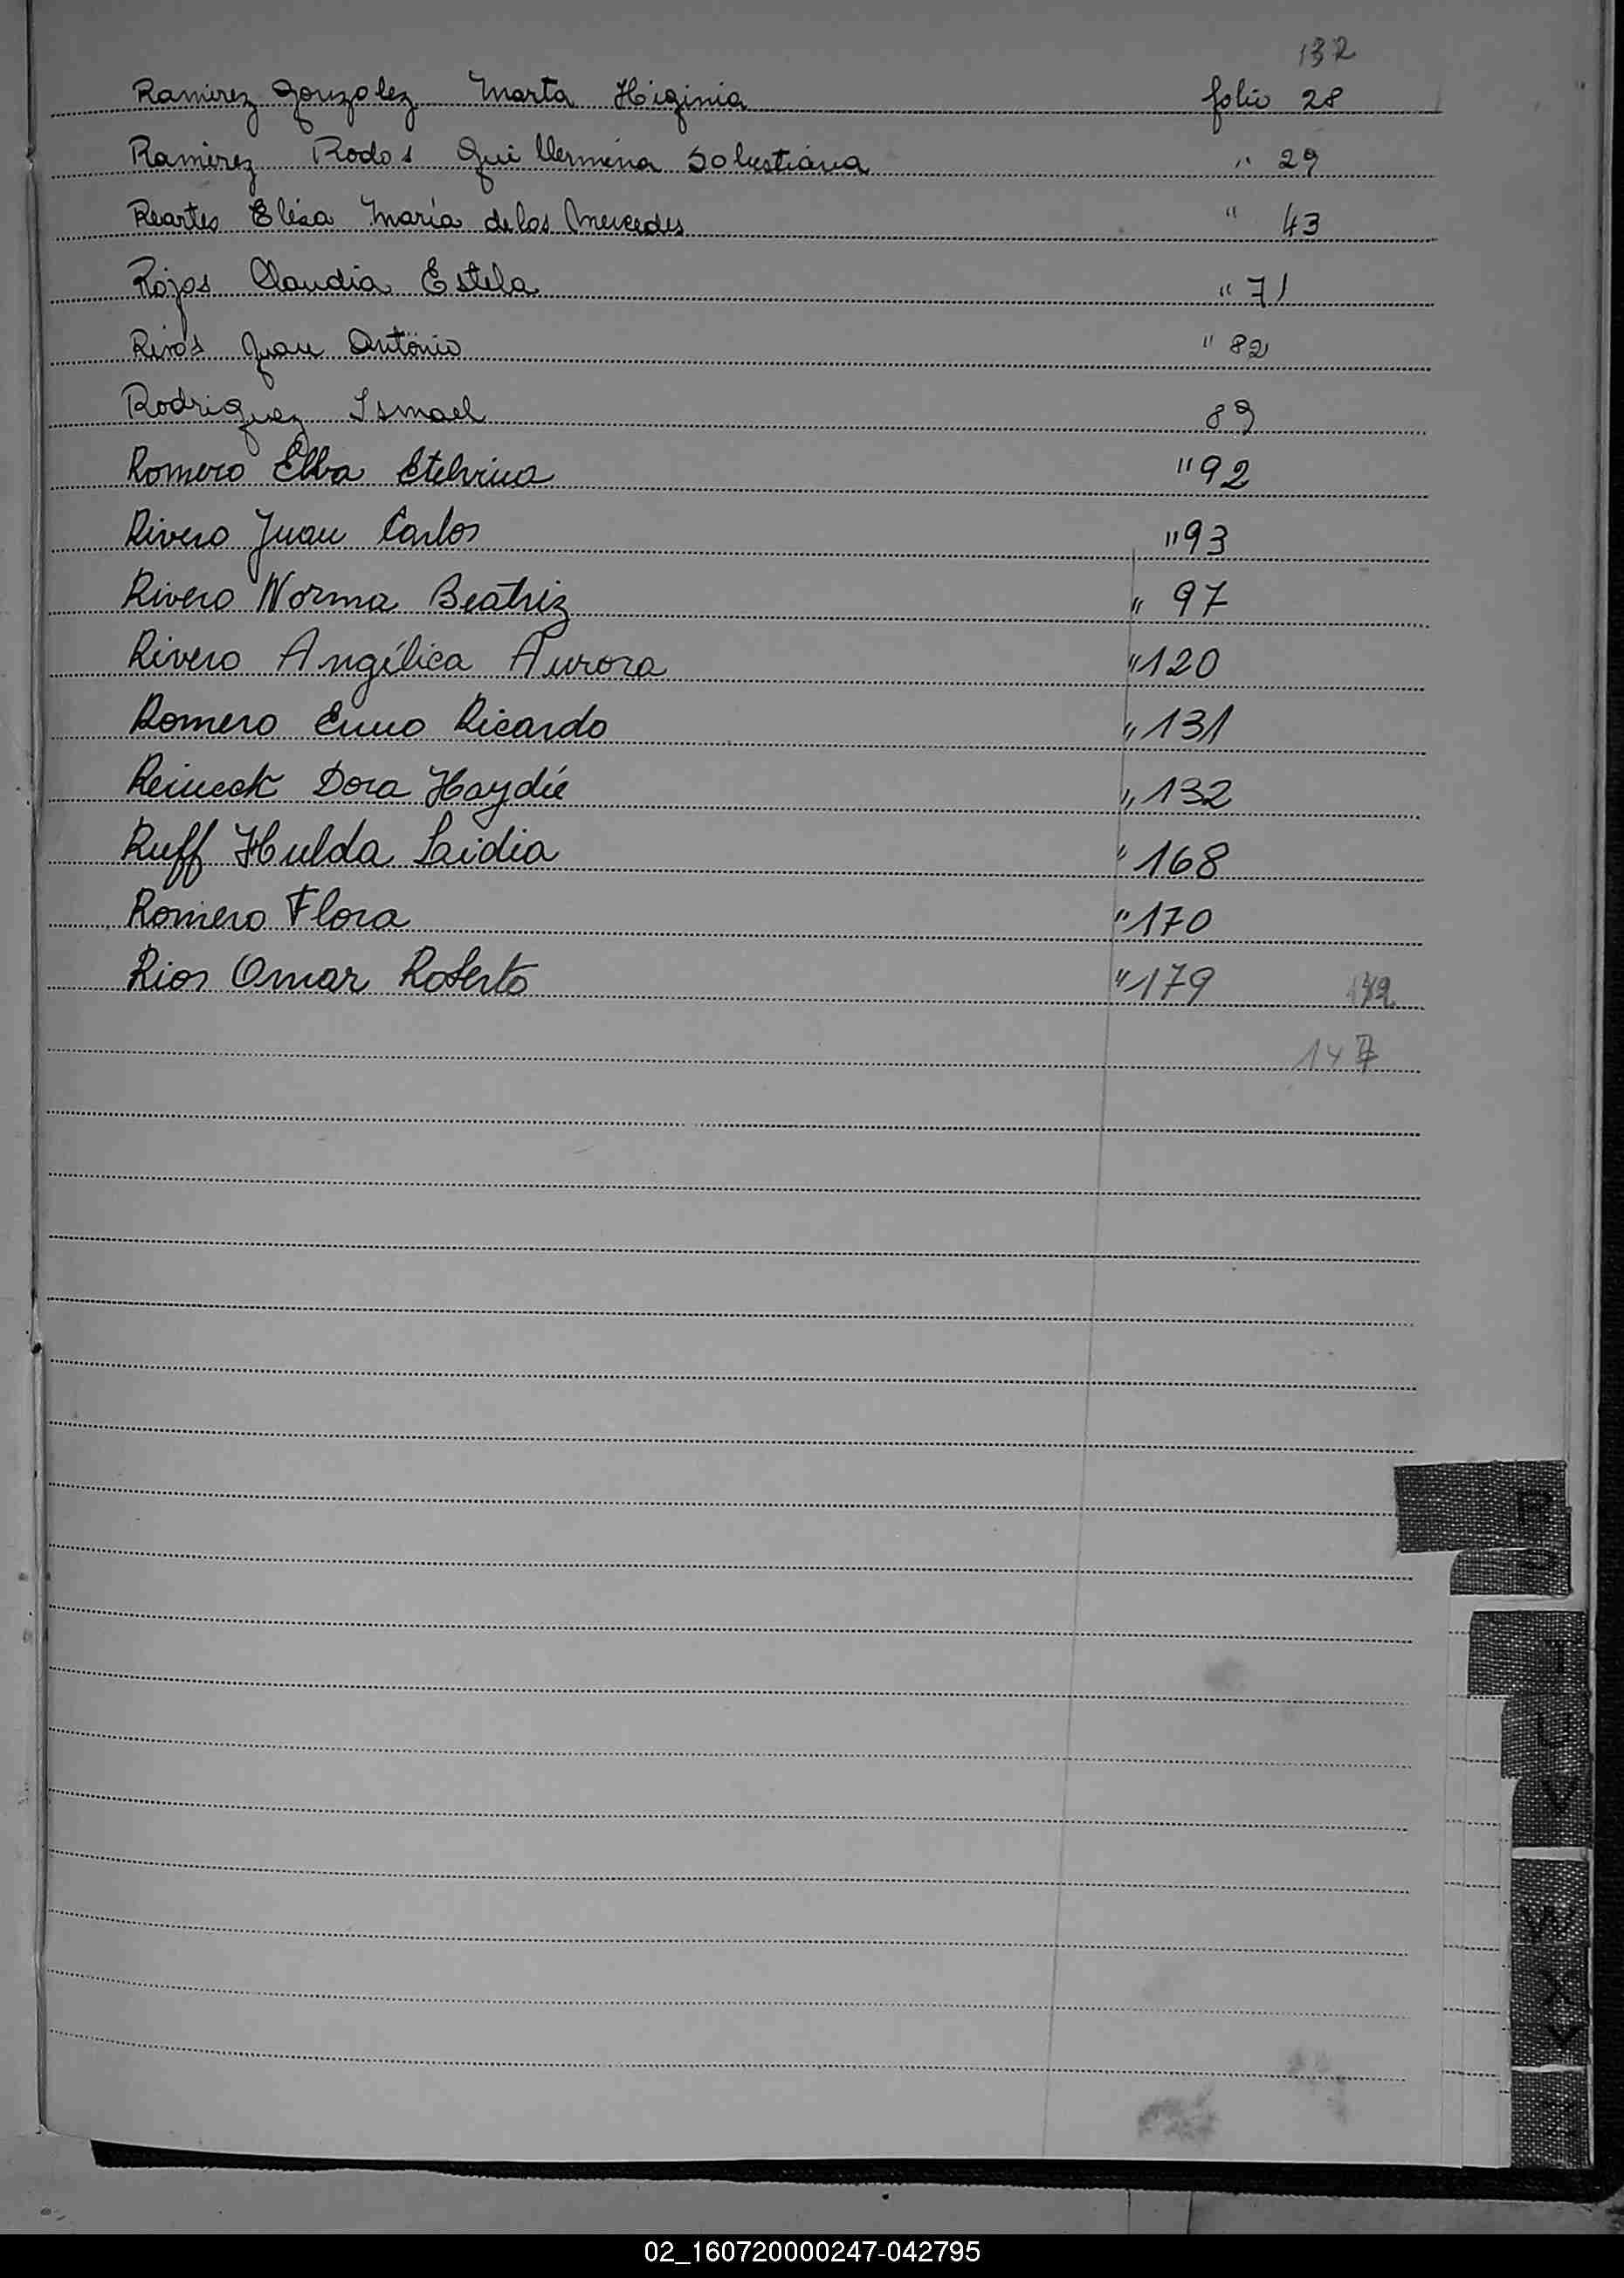 132
Ramirez Gonzalez Marta Higinia folio 28
Ramirez Rodos Guillermina Salustiana " 29
Reartes Elisa María de los Mercedes " 43
Rojas Claudia Estela " 71
Rivas Juan Antonio " 82
Rodriguez Ismael 89
Romero Elba Etelvina " 92
Rivero Juan Carlos " 93
Rivero Norma Beatriz " 97
Rivero Angélica Aurora " 120
Romero Enno Ricardo " 131
Reineck Dora Haydée " 132
Ruff Hulda Laidia " 168
Romero Flora " 170
Rios Omar Roberto " 179
147
R
T
U
V
W
X
Y
Z
02_160720000247-042795